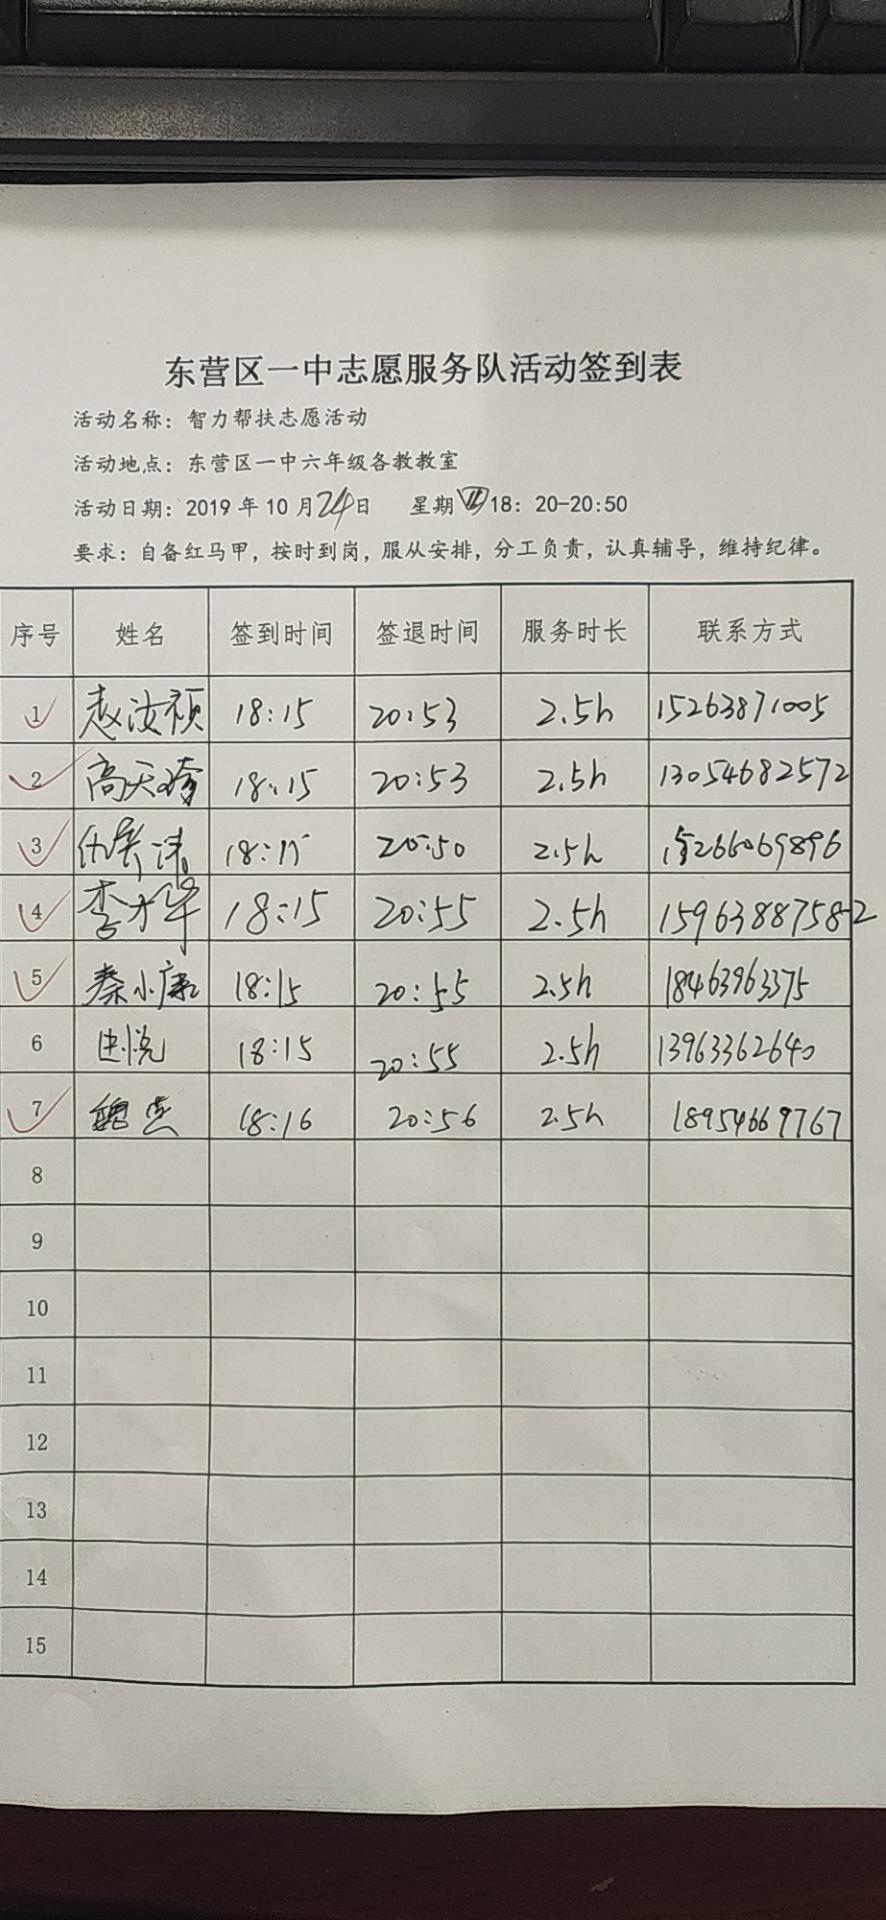 东营区一中志愿服务队活动签到表
活动名称：智力帮扶志愿活动
活动地点：东营区一中六年级各教教室
活动日期：2019年10月24日 星期四18：20-20:50
要求：自备红马甲，按时到岗，服从安排，分工负责，认真辅导，维持纪律。
序号 姓名 签到时间 签退时间 服务时长 联系方式
1 赵汝祯 18:15 20:53 2.5h 15263871005
2 高天 18:15 20:53 2.5h 13054682572
3 20:50 2.5h
4 李才华 18:15 20:55 2.5h 15963887582
5 秦小康 18:15 20:55 2.5h 18463963375
6 18:15 20:55 2.5h 13963362640
7 魏杰 18:16 20:56 2.5h 18954669767
8
9
10
11
12
13
14
15